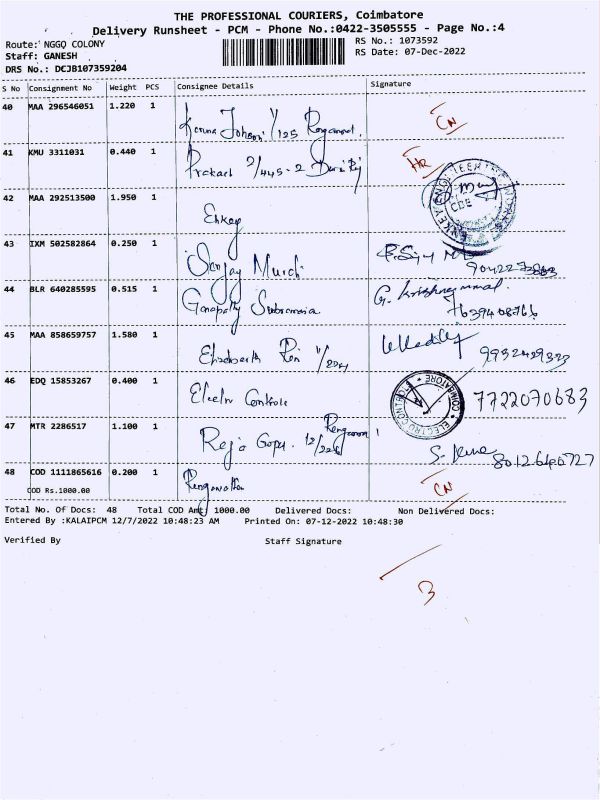 THE PROFESSIONAL COURIERS, Coimbatore
Delivery Runsheet - PCM - Phone No.:0422-3505555 - Page No.:4
Route: NGGO COLONY
RS No.: 1073592
Staff: GANESH
RS Date: 07-Dec-2022
DRS No.: DCJB107359204
S No Consignment No Weight PCS Consignee Details Signature
40 MAA 296546051 1.220 1
1/125
CN
41 KMU 3311031 0.440 1 Prakash 2/445-2
HR
42 MAA 292513500 1.950 1 Enkey
CBE
43 IXM 502582864 0.250 1 Sanjay
44 BLR 640285595 0.515 1 Ganapathy
G. Krishnammal
45 MAA 858659757 1.580 1
46 EDQ 15853267 0.400 1 Electro Controls
COIMBATORE
7722070683
47 MTR 2286517 1.100 1 Raja
8012640727
48 COD 1111865616 0.200 1
CN
COD Rs.1000.00
Total No. Of Docs: 48 Total COD Amt: 1000.00 Delivered Docs: Non Delivered Docs:
Entered By :KALAIPCM 12/7/2022 10:48:23 AM Printed On: 07-12-2022 10:48:30
Verified By Staff Signature
3